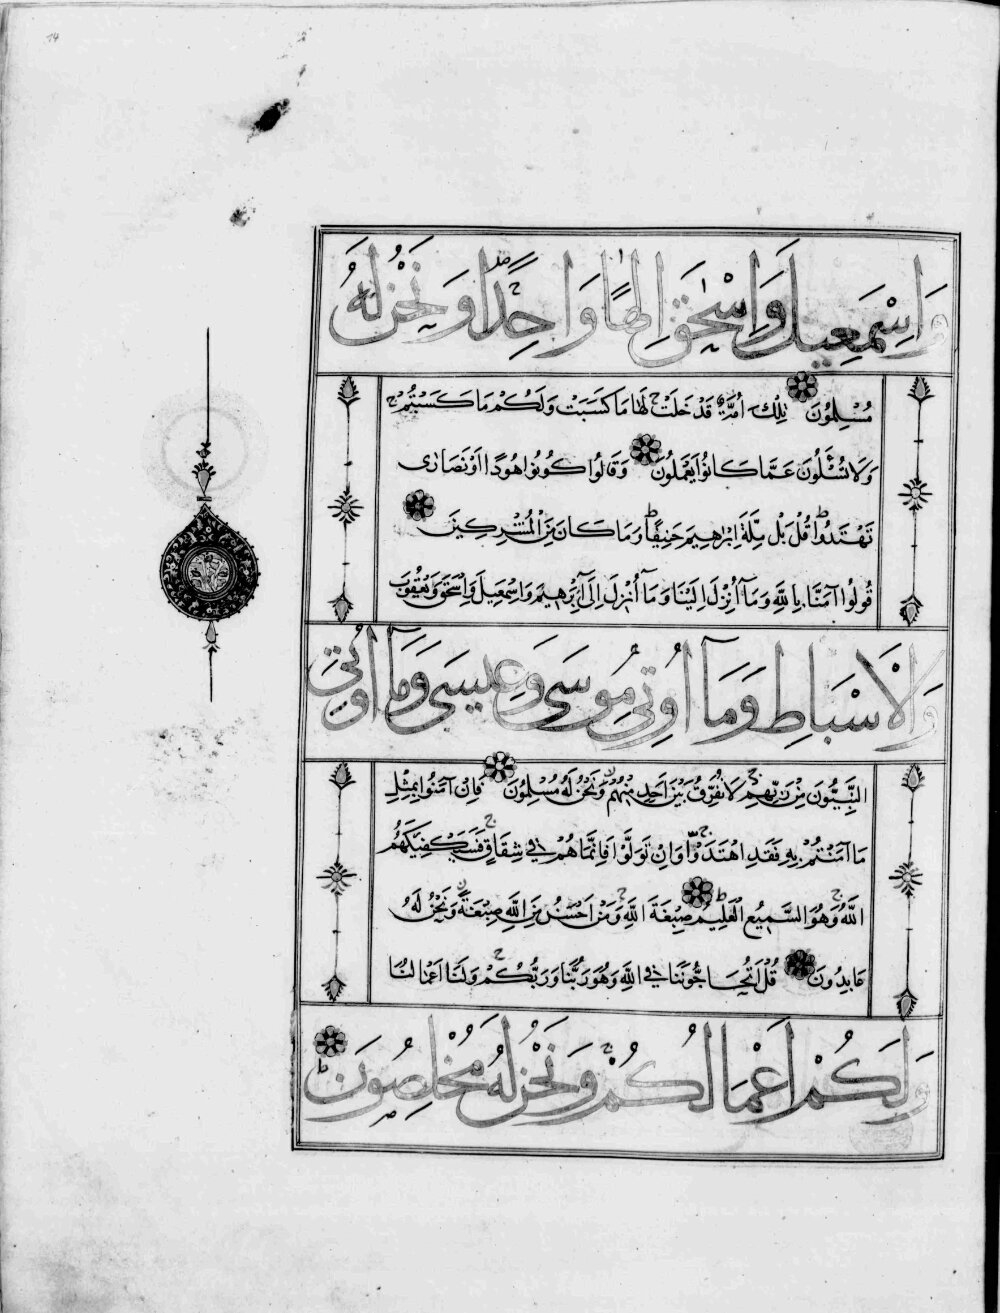 وَاِسْمٰعِيلَ وَاِسْحٰقَ اِلٰهًا وَاحِدًا وَنَحْنُ لَهُ
مُسْلِمُونَ تِلْكَ اُمَّةٌ قَدْ خَلَتْ لَهَا مَا كَسَبَتْ وَلَكُمْ مَا كَسَبْتُمْ
وَلَا تُسْئَلُونَ عَمَّا كَانُوا يَعْمَلُونَ وَقَالُوا كُونُوا هُودًا اَوْ نَصَارٰى
تَهْتَدُوا قُلْ بَلْ مِلَّةَ اِبْرٰهِيمَ حَنِيفًا وَمَا كَانَ مِنَ الْمُشْرِكِينَ
قُولُوا آمَنَّا بِاللّٰهِ وَمَا اُنْزِلَ اِلَيْنَا وَمَا اُنْزِلَ اِلٰى اِبْرٰهِيمَ وَاِسْمٰعِيلَ وَاِسْحٰقَ وَيَعْقُوبَ
وَالْاَسْبَاطِ وَمَا اُوتِيَ مُوسٰى وَعِيسٰى وَمَا اُوتِيَ
النَّبِيُّونَ مِنْ رَبِّهِمْ لَا نُفَرِّقُ بَيْنَ اَحَدٍ مِنْهُمْ وَنَحْنُ لَهُ مُسْلِمُونَ فَاِنْ آمَنُوا بِمِثْلِ
مَا آمَنْتُمْ بِهِ فَقَدِ اهْتَدَوْا وَاِنْ تَوَلَّوْا فَاِنَّمَا هُمْ فِي شِقَاقٍ فَسَيَكْفِيكَهُمُ
اللّٰهُ وَهُوَ السَّمِيعُ الْعَلِيمُ صِبْغَةَ اللّٰهِ وَمَنْ اَحْسَنُ مِنَ اللّٰهِ صِبْغَةً وَنَحْنُ لَهُ
عَابِدُونَ قُلْ اَتُحَاجُّونَنَا فِي اللّٰهِ وَهُوَ رَبُّنَا وَرَبُّكُمْ وَلَنَا اَعْمَالُنَا
وَلَكُمْ اَعْمَالُكُمْ وَنَحْنُ لَهُ مُخْلِصُونَ